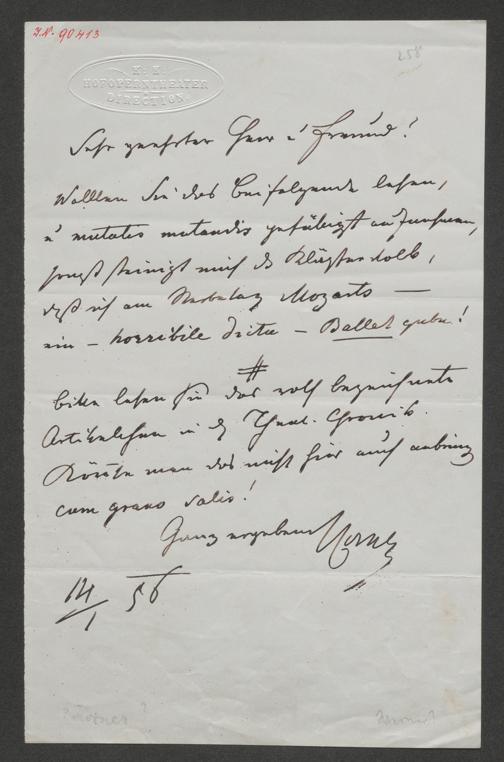 I.N. 90413
258
K. K.
HOFOPERNTHEATER
DIRECTION.
Sehr geehrter Herr u Freund!
Wollten Sie das Beifolgende lesen,
u mutatis mutandis gefälligst
sonst steinigt mich das
daß ich am Sterbetag Mozarts —
ein — horribile dictu — Ballet gebe!
#
Bitte lesen Sie das roth bezeichnete
Artikelchen in d Theat. Chronik.
Könnte man das nicht hier auch anbringen
cum grano salis!
Ganz ergebenst Cornet
14/1 56